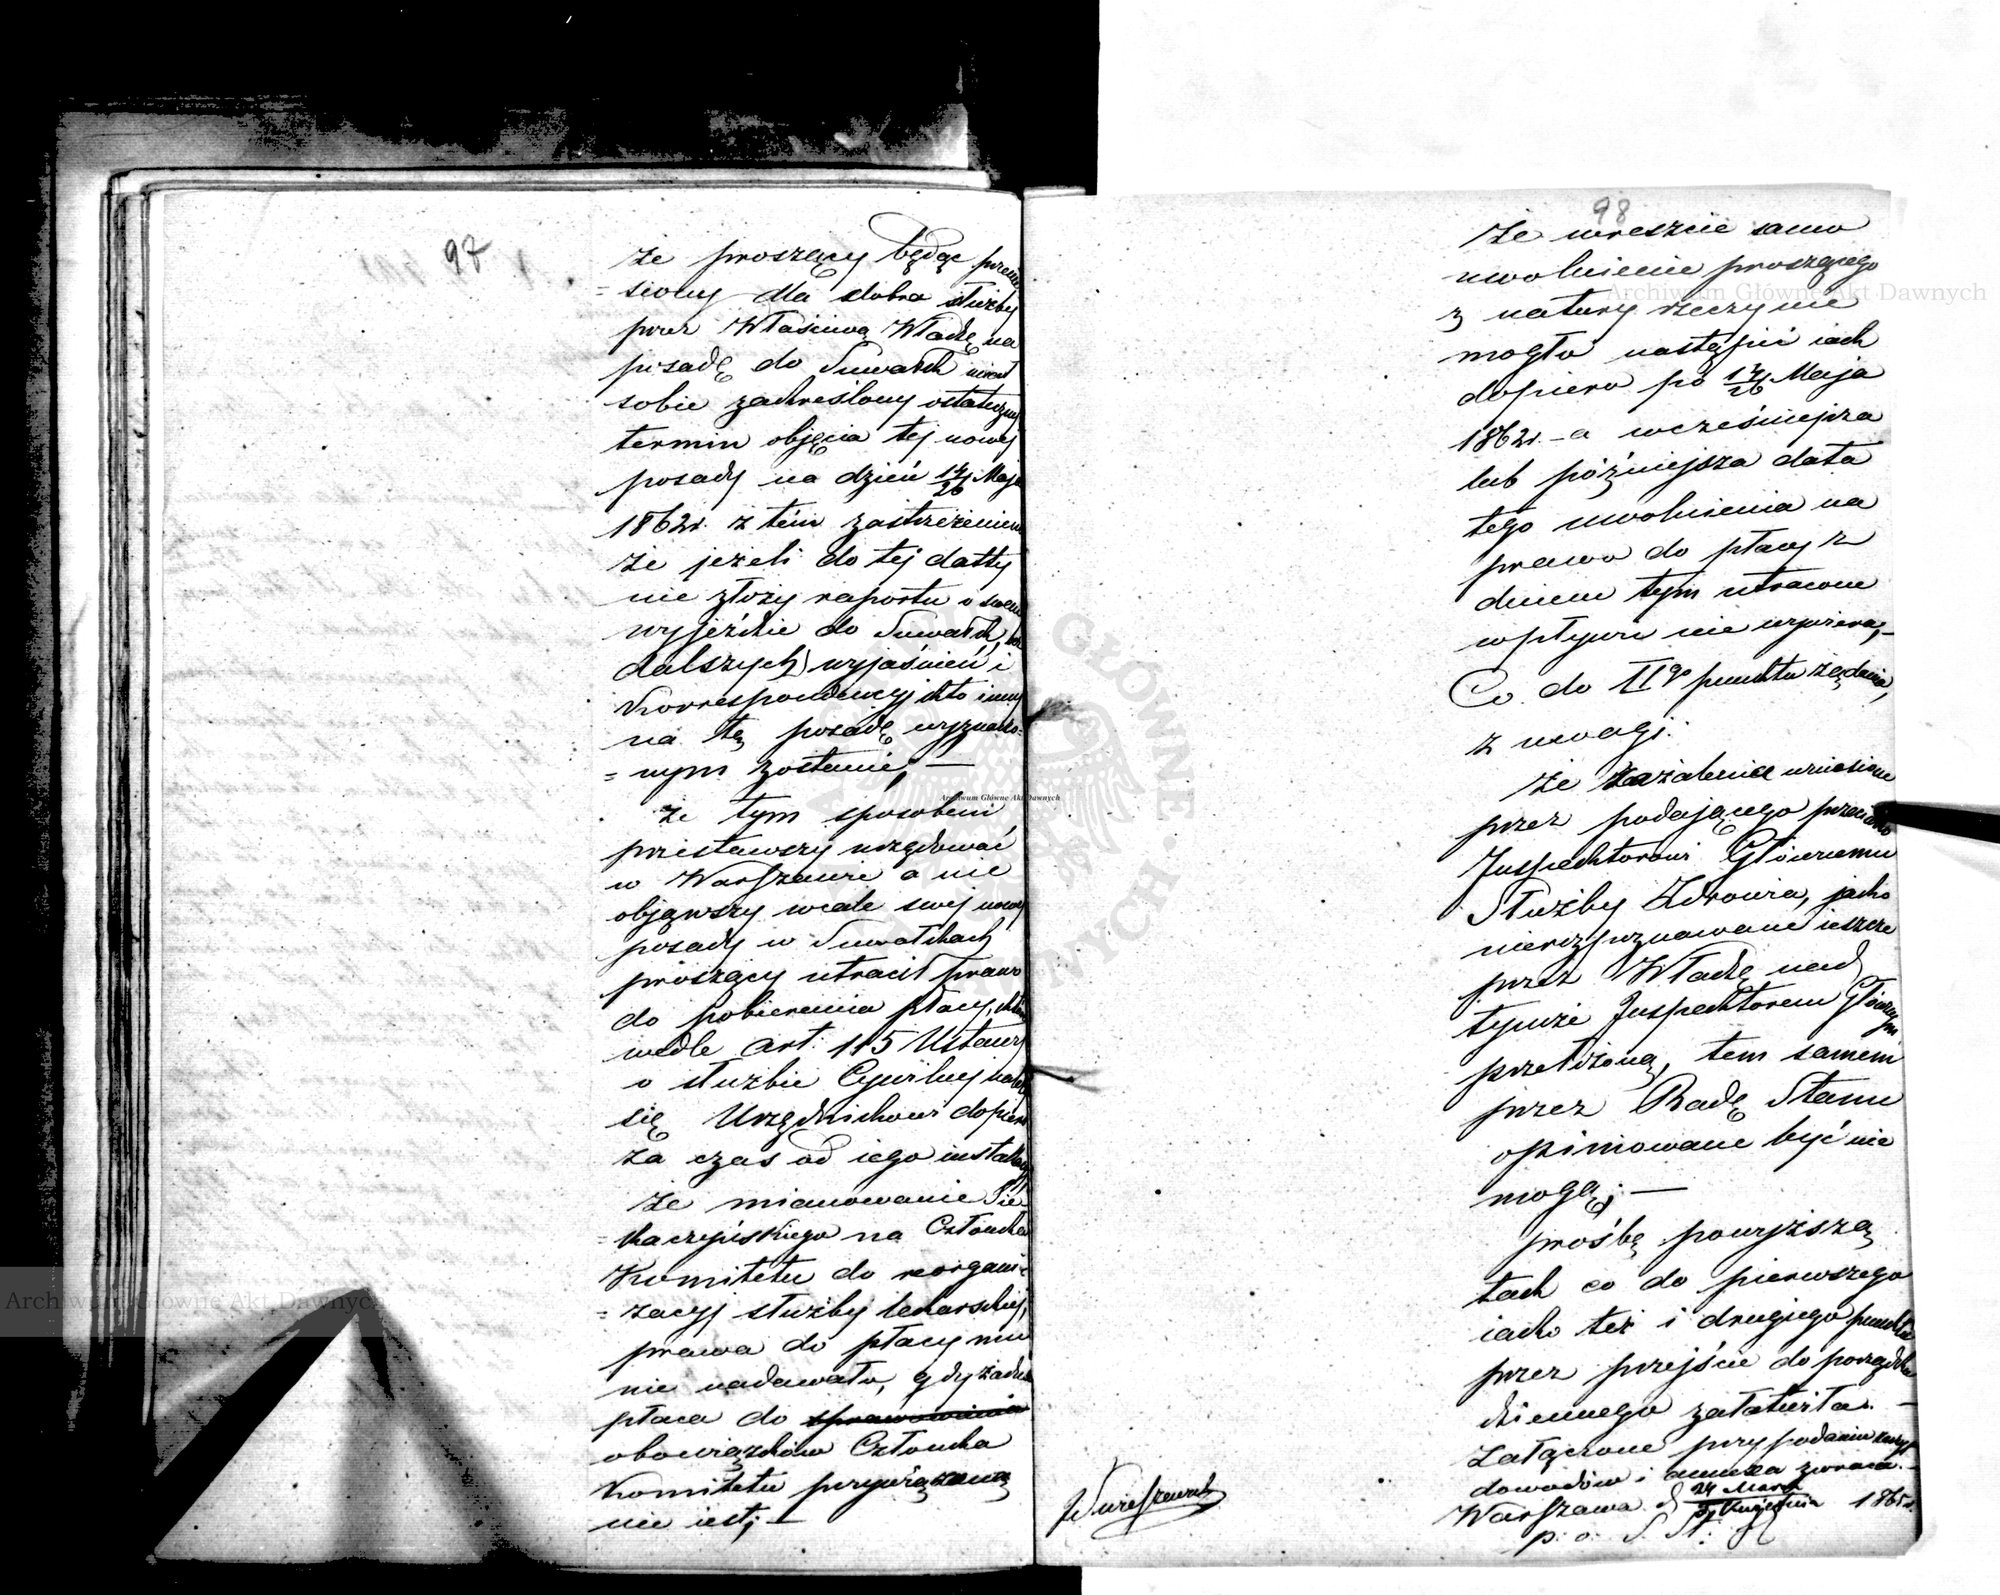 97
że proszący będąc przenie
= siony dla dobra służby
przez Właściwą Władzę na
posadę do Suwałk miał
sobie zakreślony ostateczny
termin objęcia tej nowej
posady na dzień 14/26 Maja
1862r. z tém zastrzeżeniem
że jeżeli do tej datty
nie złoży raportu o swem
wyjeździe do Suwałk, bez
dalszych wyjaśnień i
Korrespondencyj kto inny
na tę posadę wyznaczo=
= nym zostanie; —
że tym sposobem
przestawszy urzędować
w Warszawie a nie
objąwszy wcale swej nowej
posady w Suwałkach
proszący utracił prawo
do pobierania płacy, która
wedle art: 115 Ustawy
o służbie Cywilnej należy
się Urzędnikowi dopiero
za czas od iego instalacyi
że mianowanie Sie
= kaczyńskiego na Członka
Komitetu do reorgani=
= zacyj służby lekarskiej,
prawa do płacy mu
nie nadawało, gdy żadna
płaca do sprawowania
obowiązków Członka
Komitetu przywiązaną
nie iest; —
98
że wreszcie samo
uwolnienie proszącego
z natury rzeczy nie
mogło nastąpić iak
dopiero po 14/26 Maja
1862r. – a wcześniejsza
lub późniejsza data
tego uwolnienia na
prawo do płacy z
dniem tym utracone
wpływu nie wywiera; –
Co do IIgo punktu żądania,
z uwagi:
że zażalenie wniesione
przez podającego przeciwko
Inspektorowi Głównemu
Służby Zdrowia, jako
nierozpoznawane ieszcze
przez Władzę nad
tymże Inspektorem Głównym
przełożoną, tem samem
przez Radę Stanu
opiniowane być nie
mogą; —
prośbę powyższą
tak co do pierwszego
iako też i drugiego punktu
przez przejście do porządku
dziennego załatwiła. —
Załączone przy podaniu
dowodów i annexa zwraca. –
Warszawa d 24 Marca
5 Kwietnia 1865r.
p. o. S. St:
Archiwum Główne Akt Dawnych
Archiwum Główne Akt Dawnych
Archiwum Główne Akt Dawnych